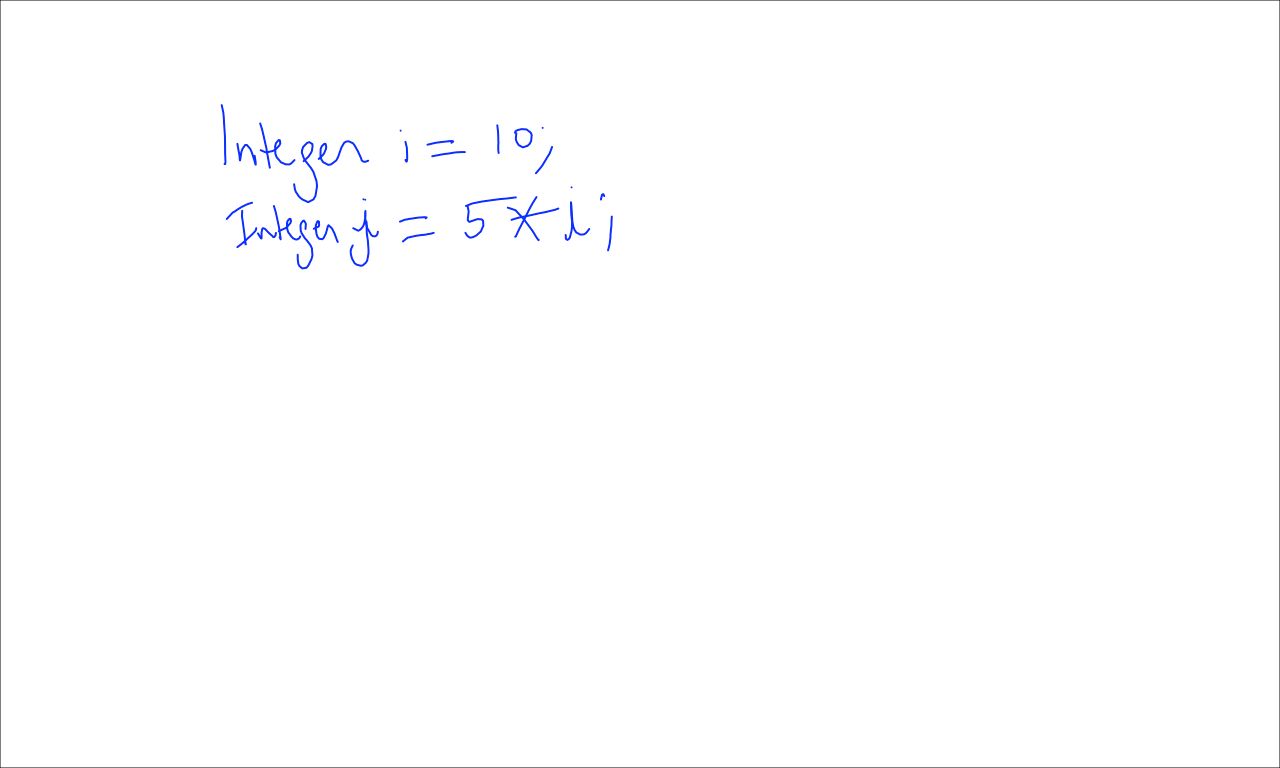 Integer i = 10;
Integer j = 5 * i;